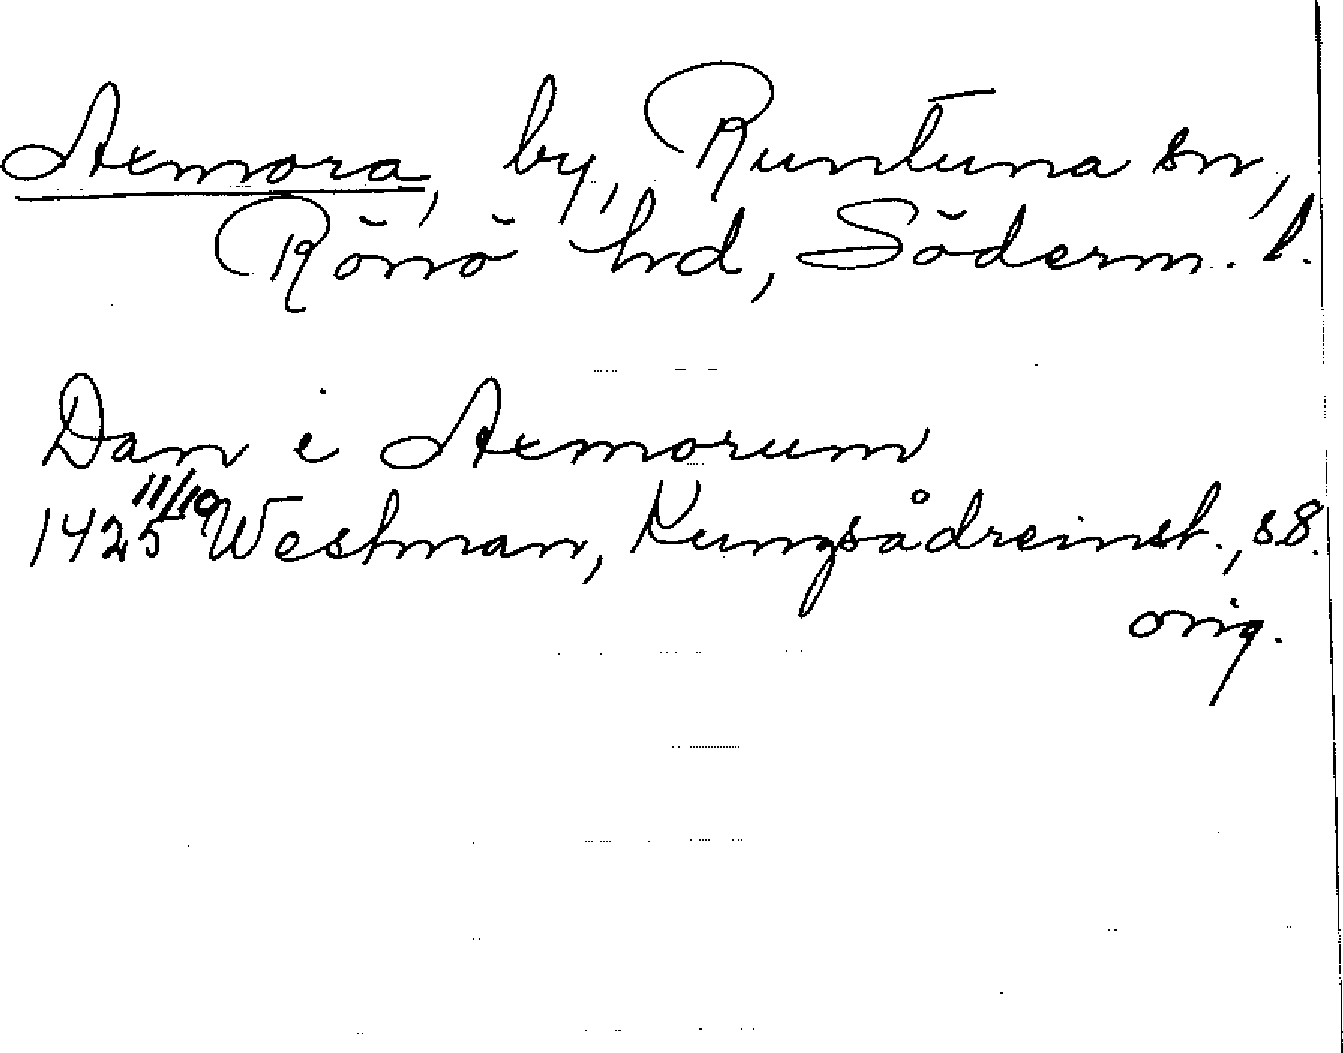 Axmora, by, Runtuna sn,
Rönö hd, Söderm. l.
Dan i Axmorum
1425 11/10 Westman, Kungsådreinst., s 8.
orig.